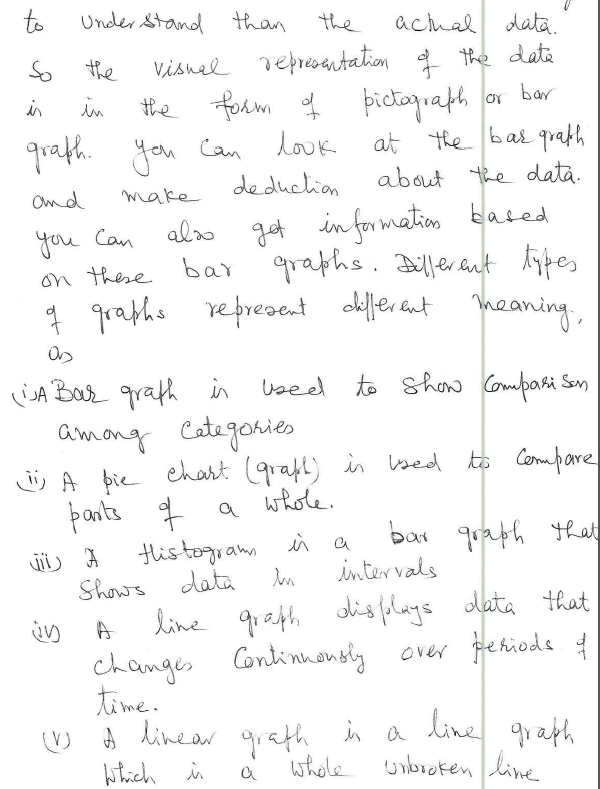 to understand than the actual data.
So the visual representation of the data
is in the form of pictograph or bar
graph. you can look at the bar graph
and make deduction about the data.
you can also get information based
on these bar graphs. Different types
of graphs represent different meaning,
as
(i) A Bar graph is used to show Comparison
among Categories
ii) A pie chart (graph) is used to Compare
parts of a whole.
iii) A Histogram is a bar graph that
shows data in intervals
iv) A line graph displays data that
changes Continuously over periods of
time.
(v) A linear graph is a line graph
which is a whole unbroken line